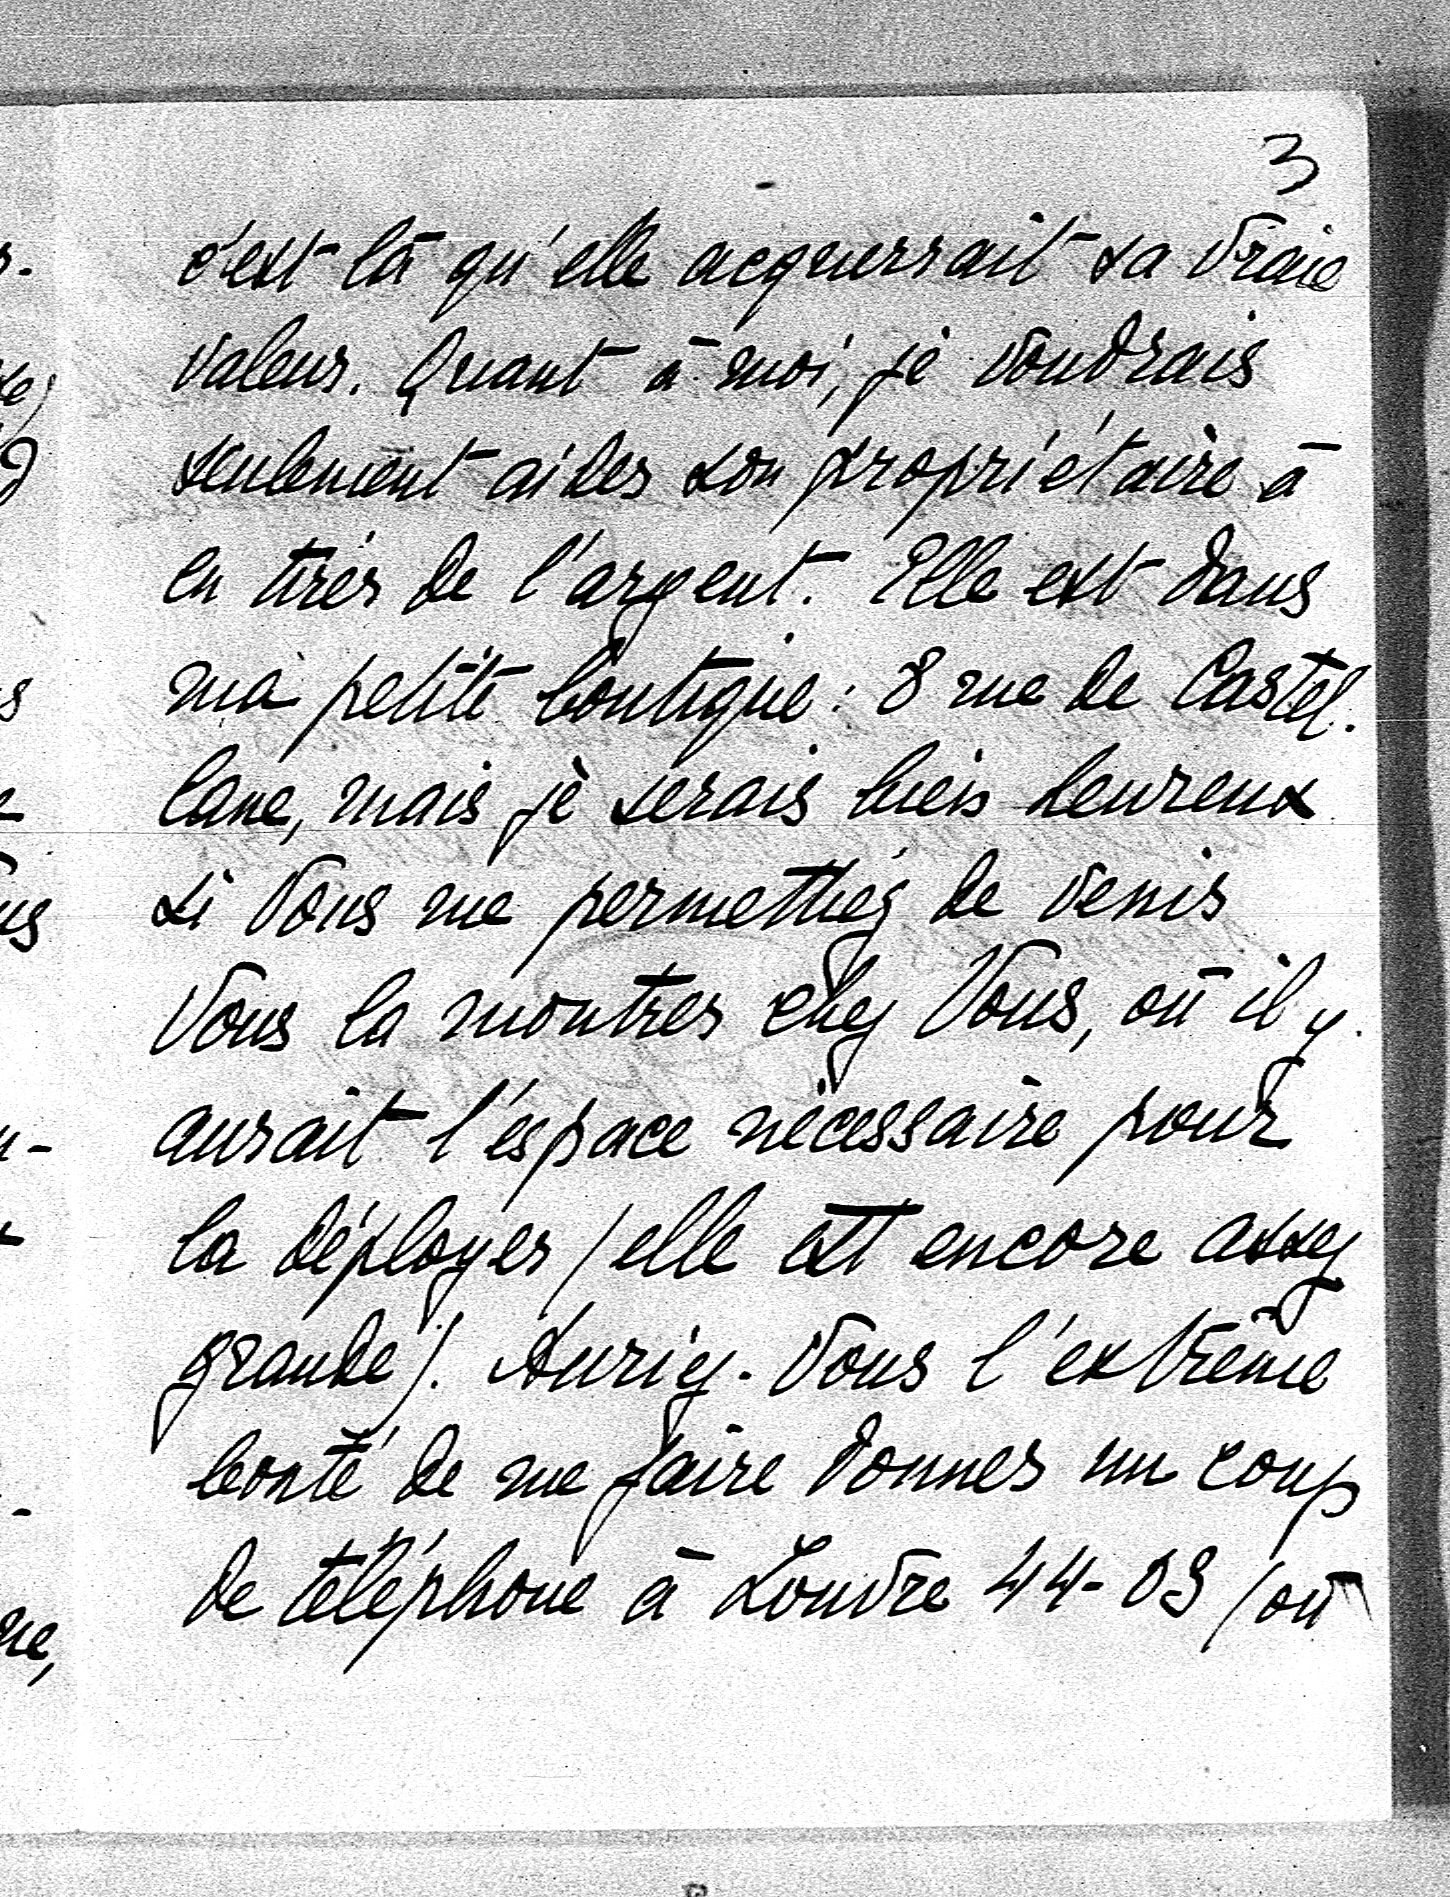 3
c'est là qu'elle acquerrait sa vraie
valeur. Quant à moi, je voudrais
seulement aider son propriétaire à
en tirer de l'argent. Elle est dans
ma petite boutique : 8 rue de Castel-
lane, mais je serais bien heureux
si Vous me permettiez de venir
Vous la montrer chez Vous, où il y
aurait l'espace nécessaire pour
la déployer (elle est encore assez
grande). Auriez-Vous l'extrême
bonté de me faire donner un coup
de téléphone à Louvre 44-09 (où